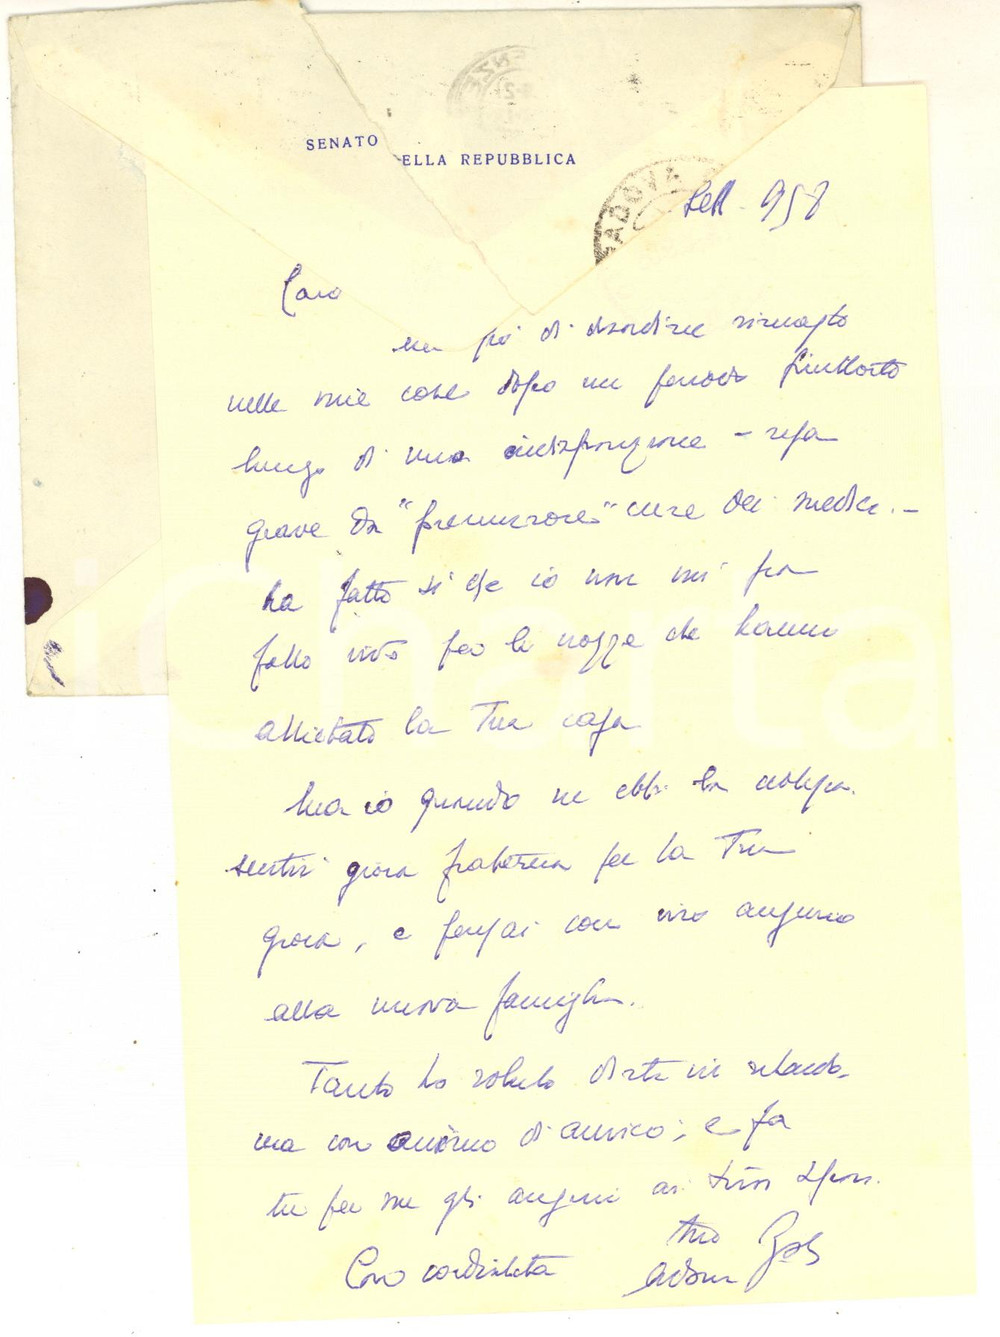 SENATO
DELLA REPUBBLICA
PADOVA
Sett. 958
Caro
un pò di disordine rimasto
nelle mie cose dopo un periodo piuttosto
lungo di una indisposizione - resa
grave da "premurose" cure dei medici. -
ha fatto sì che io non mi sia
fatto vivo per le nozze che hanno
allietato la Tua casa
Ma io quando ne ebbi la
sentii gioia fraterna per la Tua
gioia, e pensai con vivo augurio
alla nuova famiglia.
Tanto ho voluto dirti in ritardo,
ma con animo di amico; e fa
tu per me gli auguri ai Tuoi sposi.
Con cordialità
Tuo
Adone Zoli
iCharta